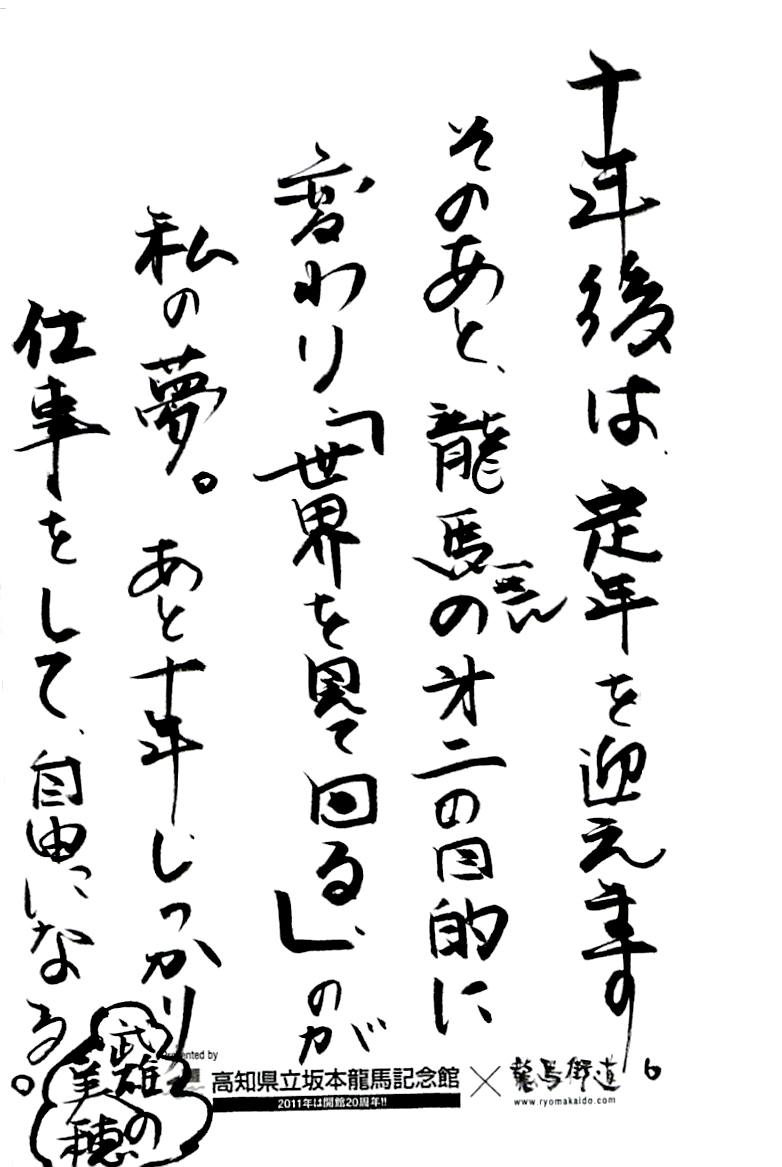 十年後は、定年を迎えます。
そのあと、龍馬さんの才二の目的に
変わり「世界を見て回る」、のが
私の夢。あと十年しっかり
仕事をして、自由になる。
武雄の
美穂
Presented by
高知県立坂本龍馬記念館 × 龍馬街道
2011年は開館20周年!!
www.ryomakaido.com